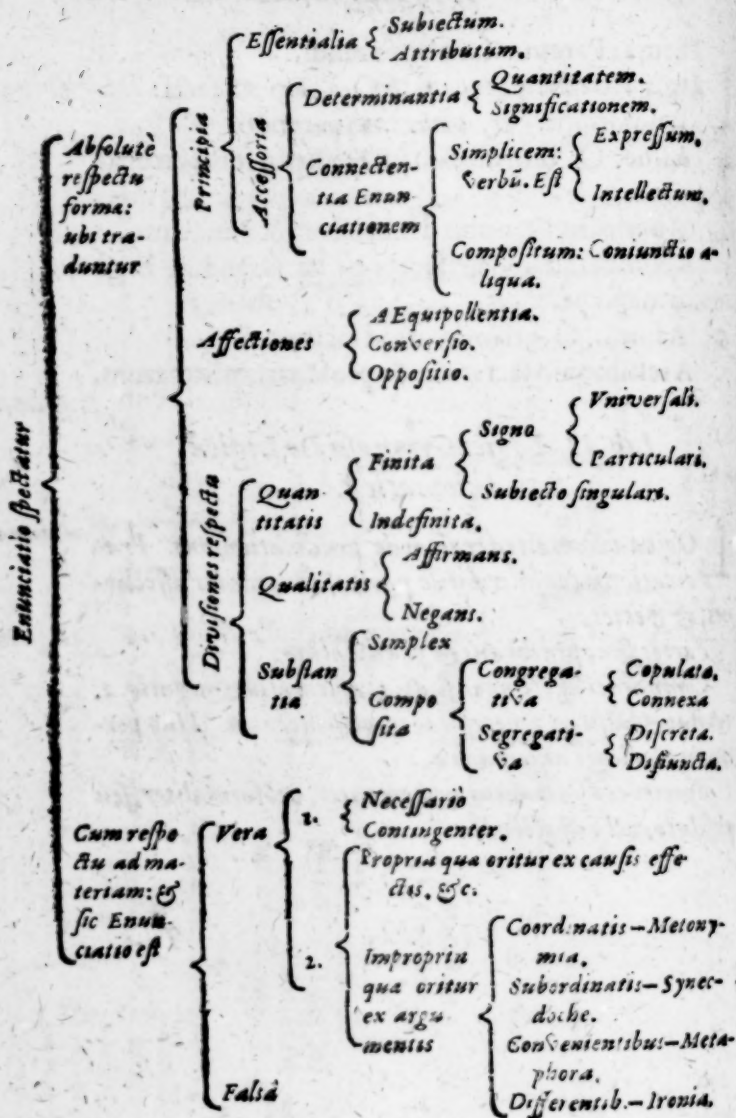 Enunciatio spectatur
Absolutè
respectu
forma:
ubi tra-
duntur
Principia
Essentialia
Subiectum.
Attributum.
Accessoria
Determinantia
Quantitatem.
Significationem.
Connecten-
tia Enun
ciationem
Simplicem:
verbū. Est
Expressum.
Intellectum.
Compositum: Coniunctio a-
liqua.
Affectiones
AEquipollentia.
Conversio.
Oppositio.
Divisiones respectu
Quan
titatis
Finita
Signo
Vniversali.
Particulari.
Subiecto singulari.
Indefinita.
Qualitatis
Affirmans.
Negans.
Substan
tia
Simplex
Compo
sita
Congrega-
tiva
Copulata.
Connexa
Segregati-
va
Discreta.
Disiuncta.
Cum respe
ctu ad ma-
teriam: &
sic Enun-
ciatio est
Vera
1.
Necessario
Contingenter.
2.
Propria qua oritur ex causis effe-
ctis, &c.
Impropria
qua oritur
ex argu
mentis
Coordinatis—Metony-
mia.
Subordinatis—Synec-
doche.
Convenientibus—Meta-
phora.
Differentib.—Ironia.
Falsa